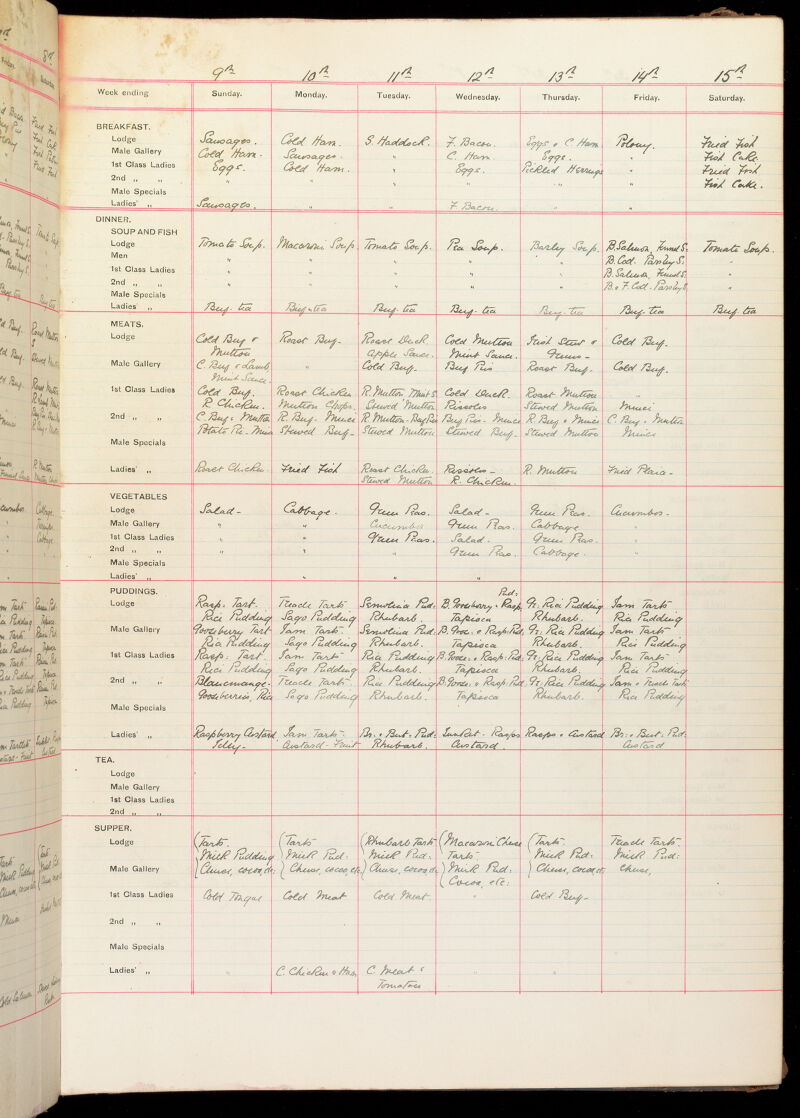 9th 10th 11th 12th 13th 14th 15th
Week ending Sunday. Monday. Tuesday. Wednesday. Thursday. Friday. Saturday.
BREAKFAST.
Lodge Sausages. Cold Ham. S. Haddock. F. Bacon. Eggs & C. Ham Polony. Fried Fish
Male Gallery Cold Ham. Sausages. " C. Ham Eggs. " Fish Cake.
1st Class Ladies Eggs. Cold Ham. " Eggs. Pickled Herrings " Fried Fish
2nd " " " " " " " " Fish Cake.
Male Specials
Ladies' " Sausages. " " F. Bacon. " "
DINNER.
SOUP AND FISH
Lodge Tomato Soup. Macaroni Soup. Tomato Soup. Pea Soup. Barley Soup. B. Salmon, Fennel S. Tomato Soup.
Men " " " " " B. Cod. Parsley S. "
1st Class Ladies " " " " " B. Salmon, Fennel S. "
2nd " " " " " " " B. & F. Cod. Parsley S. "
Male Specials
Ladies' " Beef tea Beef tea Beef tea Beef tea Beef tea Beef tea Beef tea
MEATS.
Lodge Cold Beef & Roast Beef Roast Duck Cold Mutton Irish Stew & Cold Beef.
Mutton Apple Sauce. Mint Sauce.
Male Gallery C. Beef & Lamb, " Cold Beef. Beef Pie Roast Beef. Cold Beef.
Mint Sauce
1st Class Ladies Cold Beef. Roast Chicken R. Mutton Mint S. Cold Duck. Roast Mutton "
R. Chicken. Mutton Chops. Stewed Mutton Rissoles Stewed Mutton Mince
2nd " " C. Beef & Mutton R. Beef. Mince R. Mutton. Beef Pie Beef Pie. Mince R. Beef & Mince C. Beef. Mutton
Potato Pie. Mince Stewed Beef Stewed Mutton Stewed Beef. Stewed Mutton Mince
Male Specials
Ladies' " Roast Chicken Fried Fish Roast Chicken Rissoles R. Mutton Fried Plaice
Stewed Mutton R. Chicken.
VEGETABLES
Lodge Salad Cabbage. Green Peas. Salad Green Peas. Cucumber.
Male Gallery " " Cucumber Green Peas. Cabbage "
1st Class Ladies " " Green Peas. Salad. Green Peas. "
2nd " " " " " Green Peas. Cabbage. "
Male Specials
Ladies' " " " "
PUDDINGS. Pud:
Lodge Rasp. Tart. Treacle Tarts Semolina Pud: B. Gooseberry & Rasp. Gr. Rice Pudding Jam Tarts
Rice Pudding Sago Pudding Rhubarb. Tapioca Rhubarb. Rice Pudding
Male Gallery Gooseberry Tart Jam Tarts. Semolina Pud: B. Goos. & Rasp. Pud. Gr. Rice Pudding Jam Tarts
Rice Pudding Sago Pudding Rhubarb. Tapioca Rhubarb. Rice Pudding
1st Class Ladies Rasp. Tart Jam Tarts Rice Pudding B. Goos. & Rasp. Pud. Gr. Rice Pudding Jam Tarts
Rice Pudding Sago Pudding Rhubarb. Tapioca Rhubarb. Rice Pudding
2nd " " Blancmange Treacle Tarts Rice Pudding B. Goos. & Rasp. Pud. Gr. Rice Pudding Jam & Treacle Tart
Gooseberries, Rice Sago Pudding Rhubarb. Tapioca Rhubarb. Rice Pudding
Male Specials
Ladies' " Raspberry Custard, Jam Tarts Br. & But. Pud: Junket. Rasps Rasps & Custard Br. & But. Pud:
Jelly Custard. Fruit Rhubarb. Custard. Custard
TEA.
Lodge
Male Gallery
1st Class Ladies
2nd " "
SUPPER.
Lodge Tarts Tarts Rhubarb Tarts Macaroni Cheese Tarts Treacle Tarts
Milk Pudding Milk Pud: Milk Pud: Tarts Milk Pud: Milk Pud:
Male Gallery Cheese, cocoa, etc. Cheese, cocoa, etc. Cheese, cocoa, etc. Milk Pud: Cheese, cocoa, etc. Cheese,
Cocoa, etc:
1st Class Ladies Cold Tongue Cold Meat Cold Meat. " Cold Beef
2nd " "
Male Specials
Ladies' " " C. Chicken & Ham C. Meat &
Tomatoes